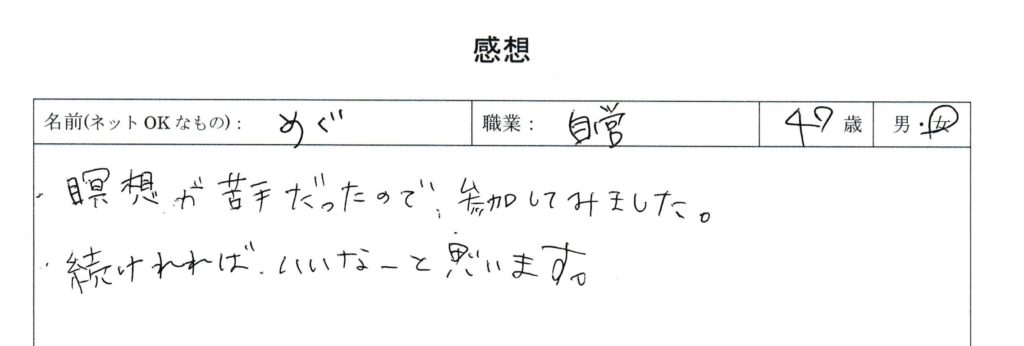 感想
名前(ネットOKなもの): めぐ 職業: 自営 47歳 男・女
・瞑想が苦手だったので、参加してみました。
・続けれれば、いいなーと思います。